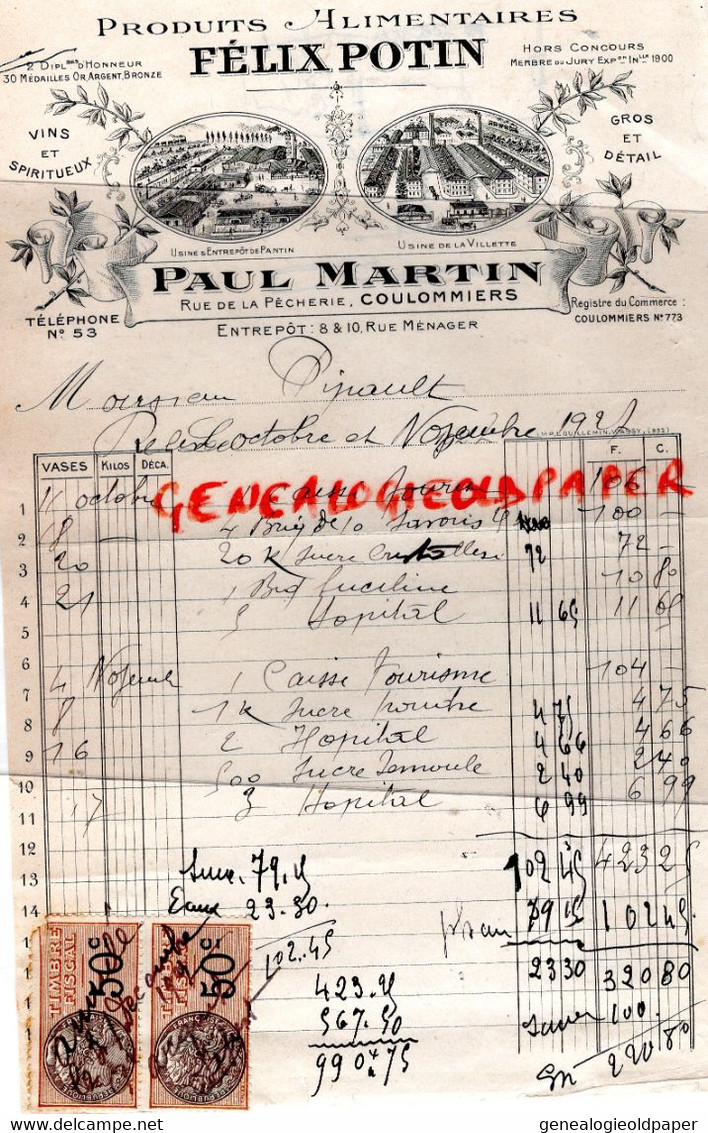 PRODUITS ALIMENTAIRES
FÉLIX POTIN
2 DIPL. D'HONNEUR
30 MÉDAILLES OR, ARGENT, BRONZE
HORS CONCOURS
MEMBRE DU JURY EXP.on IN.LLE 1900
VINS
ET
SPIRITUEUX
GROS
ET
DÉTAIL
USINE & ENTREPÔT DE PANTIN
USINE DE LA VILLETTE
PAUL MARTIN
RUE DE LA PÊCHERIE, COULOMMIERS
TÉLÉPHONE
N° 53
Registre du Commerce :
COULOMMIERS N° 773
ENTREPÔT : 8 & 10, RUE MÉNAGER
Monsieur Pipault
octobre et Novembre 192
VASES KILOS DÉCA. F. C.
1 11 octobre 1 Caisse 106 -
GENEALOGIEOLDPAPER
2 18 - 4 de 10 Savons 100 -
3 20 20 K Sucre Cristallisé 72 72 -
4 21 1 10 80
5 5 Hopital 11 65 11 65
6
7 4 Novemb 1 Caisse Tourisme 104 -
8 8 1 K Sucre poudre 4 75 4 75
9 16 2 Hopital 4 66 4 66
10 500 Sucre Semoule 2 40 2 40
11 17 3 Hopital 6 99 6 99
12 102 45 423 25
13 79.15
14 Eaux 23.30 79 15 102 45
102.45 23 30 320 80
423.25
567.50 100
990 75 220 80
TIMBRE FISCAL 50c
TIMBRE FISCAL 50c
delcampe.net
genealogieoldpaper